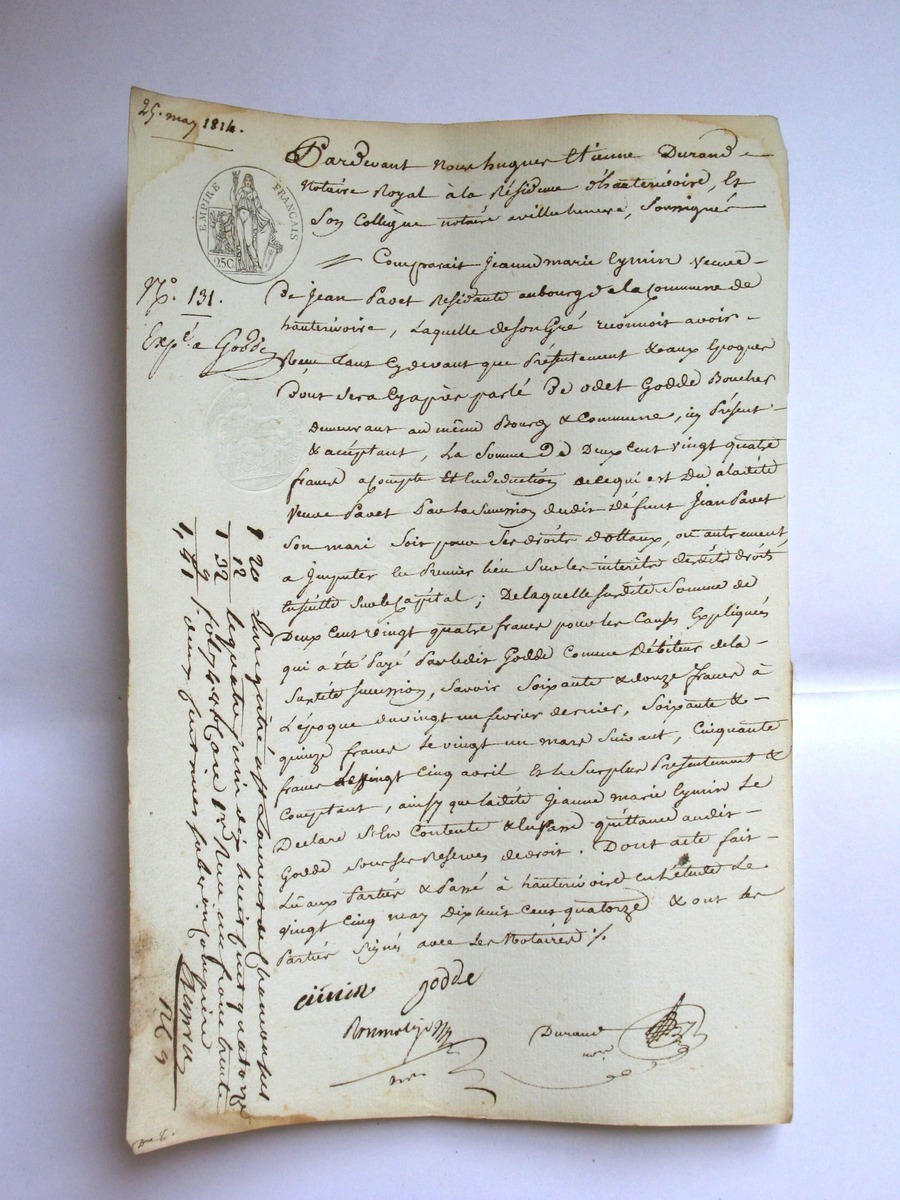 25. may 1814.
Pardevant Nous hugues Etienne Durand
Notaire Royal à la Résidence d'hauterivoire, Et
Son Collègue notaire a villecheneve, Soussignés
EMPIRE FRANÇAIS
25C
Comparait Jeanne marie Eymin veuve
De Jean Pavet Résidante au bourg de la Commune de
hauterivoire, Laquelle de son Gré reconnoit avoir
N.o 131.
Exp.é a Godde
Reçu tant Cydevant que Présentement & aux Epoques
Dont sera Cyaprès parlé De odet Godde Boucher
Demeurant au même Bourg & Commune, icy Présent
& acéptant, La Somme De Deux Cent vingt quatre
francs acompte Et En deduction de ce qui est Du a ladité
veuve Pavet Par la Succession dudit Défunt Jean Pavet
Son mari Soit pour Ses droits dottaux, ou autrement,
a Imputer En Premier lieu Sur les intérêts desdits droits
Ensuitte Sur le Capital ; De laquelle Susdité Somme de
Deux Cent vingt quatre francs pour les Causes Expliqués
qui a été Payé Par ledit Godde Comme Débiteur dela
Susdité Succession, Savoir Soixante & douze francs à
L'époque du vingt un février dernier, Soixante &
quinze francs Le vingt un mars Suivant, Cinquante
francs Le vingt Cinq avril Et le Surplus Présentement &
Comptant, ainsy que ladité Jeanne marie Eymin Le
Déclare S'En Contente & En Passe quittance audit
Godde Sous Ses Reserves de droit. Dont acte fait
Lû aux Partiés & Passé à hauterivoire En L'étude Le
vingt Cinq may Dix huit Cent quatorze & ont les
Partiés Signés avec Les Notaires ./.
eimin godde
Durand
nore
nre
Enregistré a St Laurent de Chamousset
le quatre juin dix huit cent quatorze
fol. 44 Case 1re Recu un franc trente
deux Centimes subvention comprise
1 20
12
1 32
9
1,41